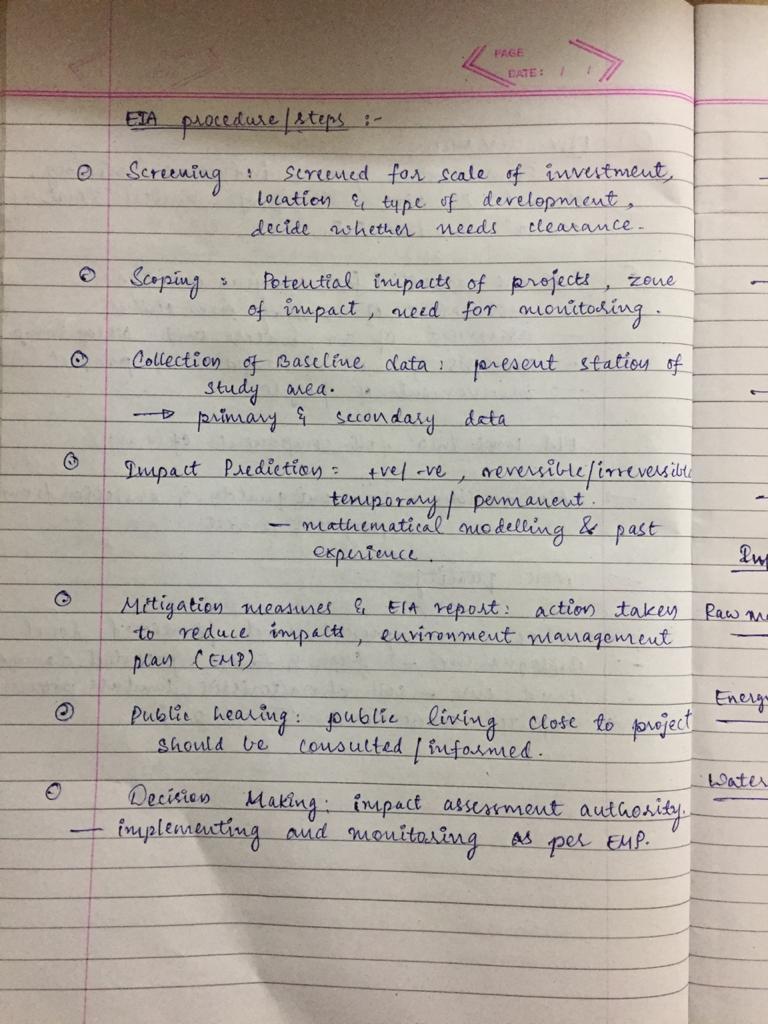 PAGE
DATE: / /
EIA procedure/steps :-
Screening : screened for scale of investment,
location & type of development,
decide whether needs clearance.
Scoping : Potential impacts of projects, zone
of impact, need for monitoring.
Collection of Baseline data : present station of
study area.
→ primary & secondary data
Impact Prediction = +ve/-ve, reversible/irreversible
temporary/permanent.
- mathematical modelling & past
experience.
Mitigation measures & EIA report : action taken
to reduce impacts, environment management
plan (EMP)
Public hearing : public living close to project
should be consulted/informed.
Decision Making : impact assessment authority.
- implementing and monitoring as per EMP.
Raw
Energy
Water